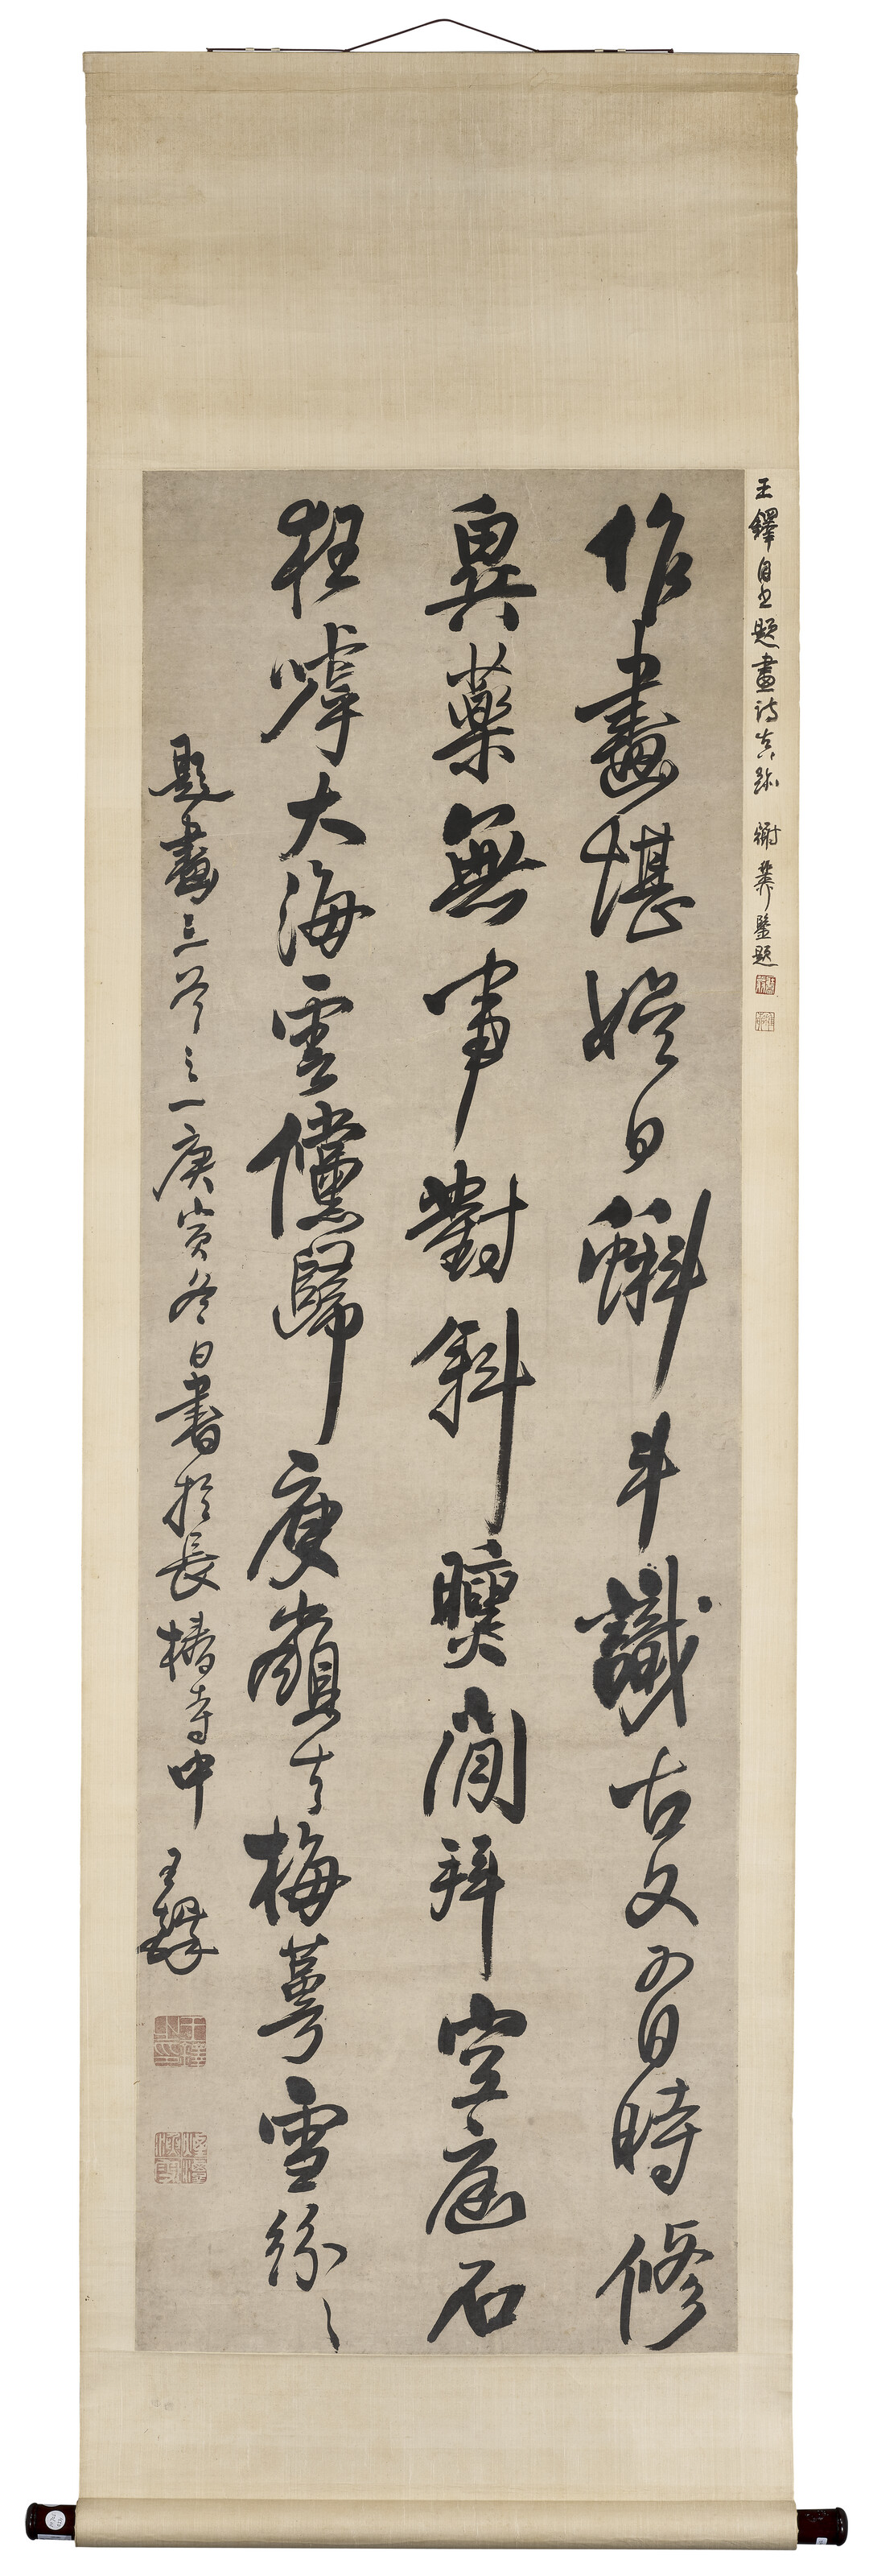 王鐸自書題畫詩真跡 謝稚柳鑒題
作畫堪娛日蝌斗識古文有時修
異藥無事對斜曛閒拜空庭石
狂呼大海雲儻歸庾嶺去梅萼雪紛紛
題畫三首之一庚寅冬日書於長椿寺中 王鐸